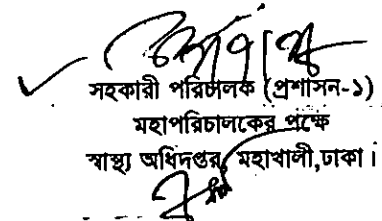 সহকারী পরিচালক (প্রশাসন-১)
মহাপরিচালকের পক্ষে
স্বাস্থ্য অধিদপ্তর, মহাখালী,ঢাকা।